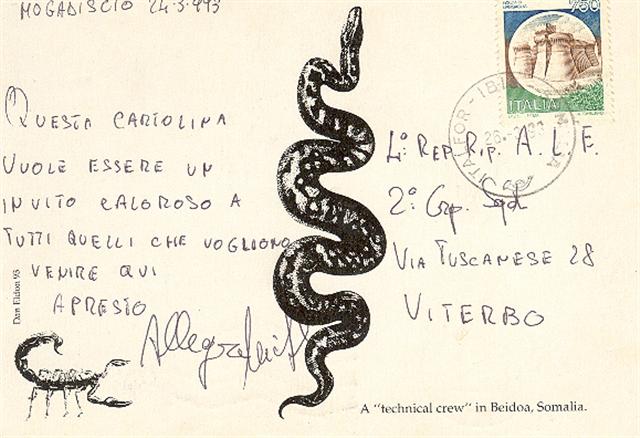 MOGADISCIO 24-3-993
QUESTA CARTOLINA
VUOLE ESSERE UN
INVITO CALOROSO A
TUTTI QUELLI CHE VOGLIONO
VENIRE QUI
A PRESTO
Dan Eldon 93
750
ITALIA
ITALFOR - IBIS
4° REP. RIP. A. L. E.
2° Grp. Sqd
VIA TUSCANESE 28
VITERBO
A "technical crew" in Beidoa, Somalia.